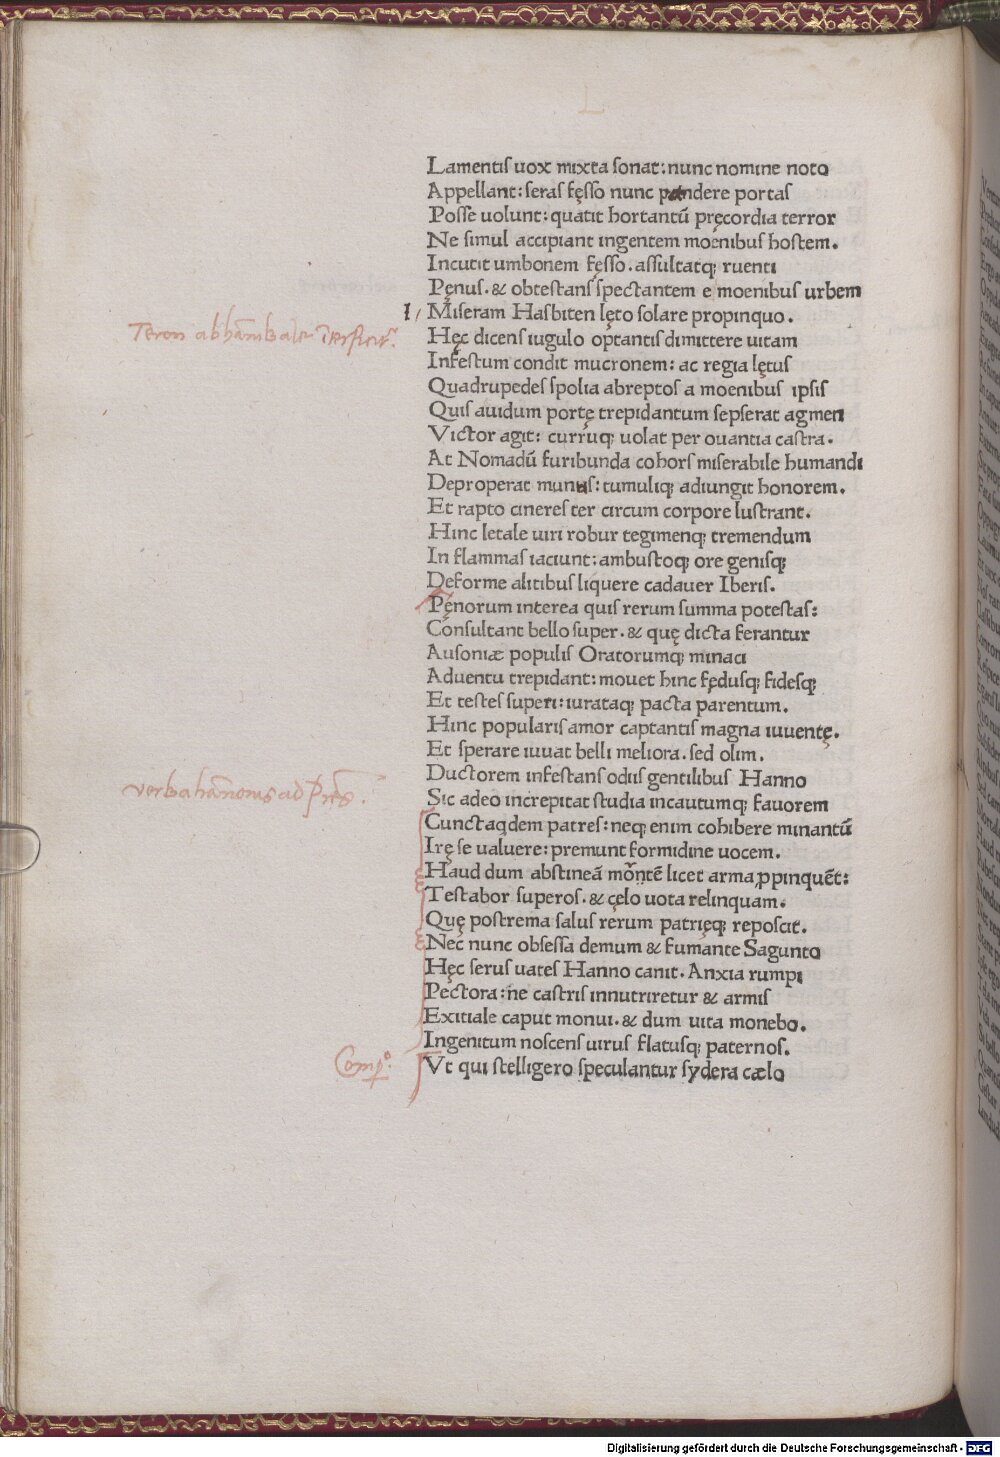 L
Lamentiſ uox mixta ſonat: nunc nomine noto
Appellant: ſeraſ fęſſo nunc pandere portaſ
Poſſe uolunt: quatit hortantū pręcordia terror
Ne ſimul accipiant ingentem moenibuſ hoſtem.
Incutit umbonem fęſſo. aſſultatq; ruenti
Pęnuſ. & obteſtanſ ſpectantem e moenibuſ urbem
Miſeram Haſbiten lęto ſolare propinquo.
Teron ab
Hęc dicenſ iugulo optantiſ dimittere uitam
Infeſtum condit mucronem: ac regia lętuſ
Quadrupedeſ ſpolia abreptoſ a moenibuſ ipſiſ
Quiſ auidum portę trepidantum ſepſerat agmen
Victor agit: curruq; uolat per ouantia caſtra.
At Nomadū furibunda cohorſ miſerabile humandi
Deproperat munuſ: tumuliq; adiungit honorem.
Et rapto cinereſ ter circum corpore luſtrant.
Hinc letale uiri robur tegimenq; tremendum
In flammaſ iaciunt: ambuſtoq; ore geniſq;
Deforme alitibuſ liquere cadauer Iberiſ.
Pęnorum interea quiſ rerum ſumma poteſtaſ:
Conſultant bello ſuper. & quę dicta ferantur
Auſoniæ populiſ Oratorumq; minaci
Aduentu trepidant: mouet hinc fęduſq; fideſq;
Et teſteſ ſuperi: iurataq; pacta parentum.
Hinc populariſ amor captantiſ magna iuuentę.
Et ſperare iuuat belli meliora. ſed olim.
Ductorem infeſtanſ odiiſ gentilibuſ Hanno
verba hānonis ad p̄res.
Sic adeo increpitat ſtudia incautumq; fauorem
Cuncta qdem patreſ: neq; enim cohibere minantū
Irę ſe ualuere: premunt formidine uocem.
Haud dum abſtineā licet arma ꝓpinquēt:
Teſtabor ſuperoſ. & cęlo uota relinquam.
Quę poſtrema ſaluſ rerum patrięq; repoſcit.
Nec nunc obſeſſa demum & fumante Sagunto
Hęc ſeruſ uateſ Hanno canit. Anxia rumpi
Pectora: ne caſtriſ innutriretur & armiſ
Exitiale caput monui. & dum uita monebo.
Ingenitum noſcenſ uiruſ flatuſq; paternoſ.
Comp̲º.
Vt qui ſtelligero ſpeculantur ſydera cælo
Digitalisierung gefördert durch die Deutsche Forschungsgemeinschaft - DFG